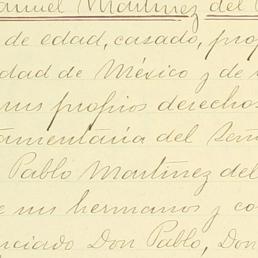 anuel Martinez del
de edad, casado, prop
dad de México y de
mis propios derechos
amentaria del Señ
Pablo Martinez del
e mis hermanos y co
nciado Don Pablo, Don